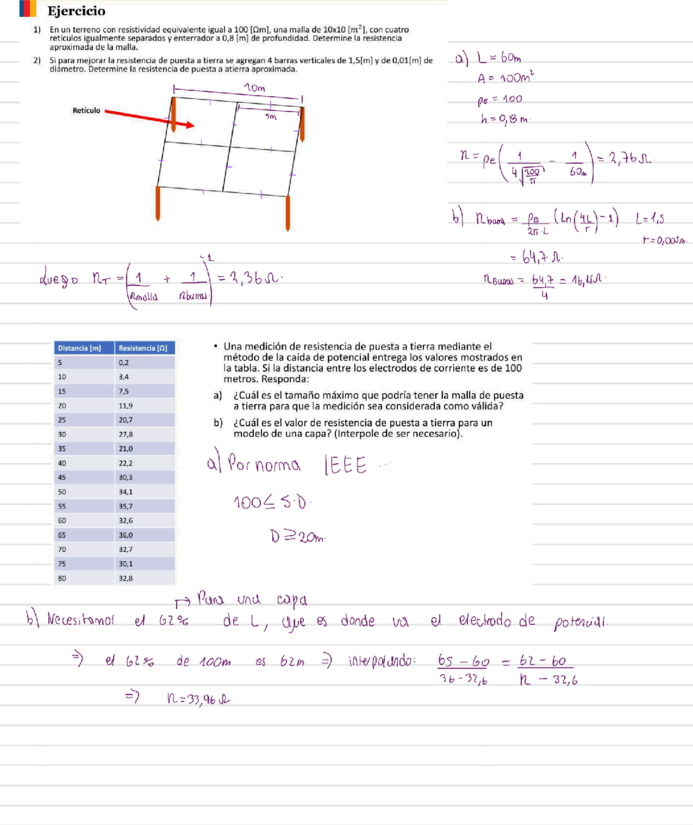 Ejercicio
1) En un terreno con resistividad equivalente igual a 100 [Ωm], una malla de 10x10 [m²], con cuatro
retículos igualmente separados y enterrador a 0,8 [m] de profundidad. Determine la resistencia
aproximada de la malla.
2) Si para mejorar la resistencia de puesta a tierra se agregan 4 barras verticales de 1,5[m] y de 0,01[m] de
diámetro. Determine la resistencia de puesta a atierra aproximada.
a) L = 60m
A = 100m²
ρe = 100
h = 0,8 m.
10m
Retículo
5m
R = ρe (1/(4√(100/π)) - 1/60m) = 2,76 Ω
b) R barra = ρe/(2π·L) (Ln(4L/r) - 1) L = 1,5
r = 0,005m.
= 64,7 Ω.
R Barras = 64,7/4 = 16,18Ω
Luego R_T = (1/R malla + 1/R barras)⁻¹ = 2,36 Ω.
Distancia [m] Resistencia [Ω]
5 0,2
10 3,4
15 7,5
20 11,9
25 20,7
30 27,8
35 21,0
40 22,2
45 30,3
50 34,1
55 35,7
60 32,6
65 36,0
70 32,7
75 30,1
80 32,8
• Una medición de resistencia de puesta a tierra mediante el
método de la caída de potencial entrega los valores mostrados en
la tabla. Si la distancia entre los electrodos de corriente es de 100
metros. Responda:
a) ¿Cuál es el tamaño máximo que podría tener la malla de puesta
a tierra para que la medición sea considerada como válida?
b) ¿Cuál es el valor de resistencia de puesta a tierra para un
modelo de una capa? (Interpole de ser necesario).
a) Por norma IEEE ...
100 ≤ 5·D.
D ≥ 20m.
↱ Para una capa
b) Necesitamos el 62% de L, que es donde va el electrodo de potencial.
⇒ el 62% de 100m es 62m ⇒ interpolando: (65-60)/(36-32,6) = (62-60)/(R-32,6)
⇒ R = 33,96 Ω